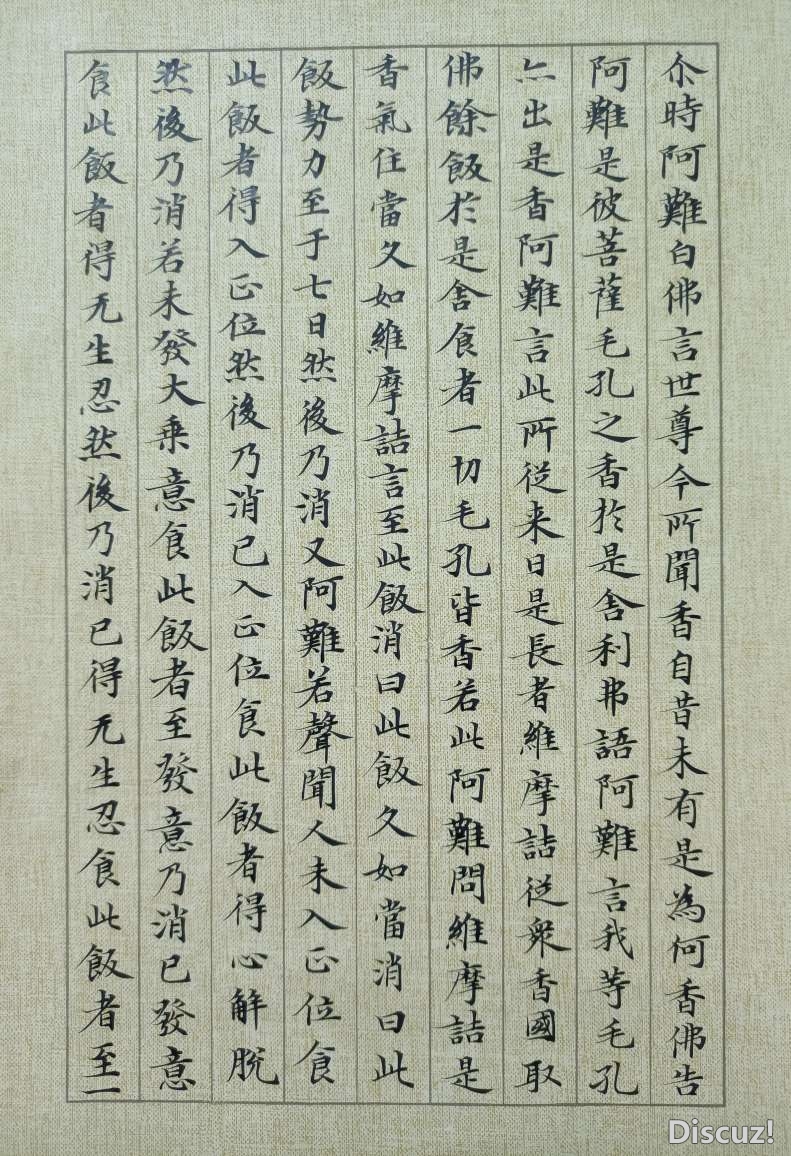 尒時阿難白佛言世尊今所聞香自昔未有是為何香佛告
阿難是彼菩薩毛孔之香於是舍利弗語阿難言我等毛孔
亦出是香阿難言此所從来曰是長者維摩詰從衆香國取
佛餘飯於是舍食者一切毛孔皆香若此阿難問維摩詰是
香氣住當久如維摩詰言至此飯消曰此飯久如當消曰此
飯勢力至于七日然後乃消又阿難若聲聞人未入正位食
此飯者得入正位然後乃消已入正位食此飯者得心解脫
然後乃消若未發大乗意食此飯者至發意乃消已發意
食此飯者得无生忍然後乃消已得无生忍食此飯者至一
Discuz!